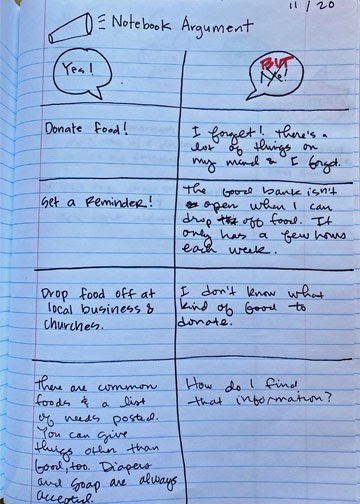 11/20
Notebook Argument
Yes!
BUT
Donate food!
I forget! There's a
lot of things on
my mind & I forget.
Set a Reminder!
The food bank isn't
open when I can
drop off food. It
only has a few hours
each week.
Drop food off at
local business &
churches.
I don't know what
kind of food to
donate.
There are common
foods & a list
of needs posted.
You can give
things other than
food, too. Diapers
and soap are always
accepted.
How do I find
that information?